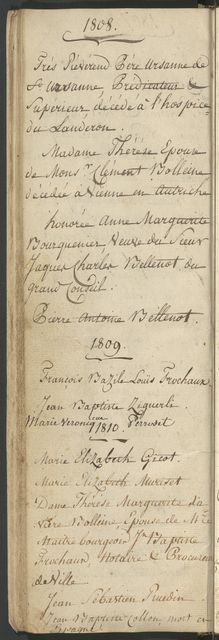 1808.
Très Révérend Père Ursanne de
St Ursanne, Prédicateur &
Superieur, décédé à l'hospice
du Landeron.
Madame Thérèse Epouse
de Monsr Clément Bolléine
décedée à Vienne en Autriche
honorée Anne Marguerite
Bourguenier Veuve du Sieur
Jaques Charles Bellenot du
grand Conseil.
Pierre Antoine Bellenot.
1809.
François Bazile Louis Frochaux
Jean Baptiste Ziguerli.
Marie Veronique Perroset
1810.
Marie Elizabeth Gicot
Marie Elizabeth Muriset
Dame Thérèse Marguerite da
Bolléine Epouse de Mr
Maitre bourgeois Jn Baptiste
Frochaux, Notaire & Procureur
de Ville
Jean Sébastien Ruedin
Jean Baptiste Collon mort en
Espagne